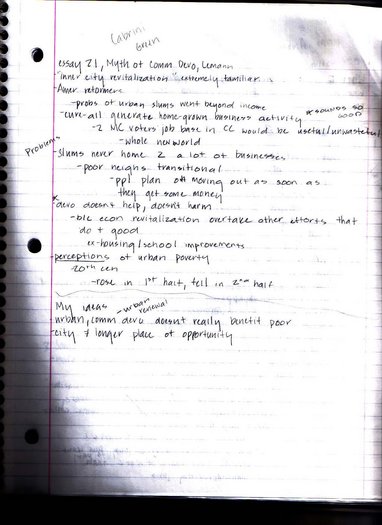 Cabrini
Green
essay 21, Myth of Comm. Devo, Lemann
"inner city revitalization" extremely familiar
Amer reformers
-probs of urban slums went beyond income
-cure-all generate home-grown business activity *sounds so good
-2 MC voters job base in CC would be useful/unwasteful
-whole new world
Problems
-slums never home 2 a lot of businesses
-poor neighs transitional
-ppl plan on moving out as soon as
they get some money
*devo doesnt help, doesnt harm
-b/c econ revitalization overtake other efforts that
do + good
ex-housing/school improvements
-perceptions of urban poverty
20th cen
-rose in 1st half, fell in 2nd half
My ideas -urban renewal
-urban, comm devo doesnt really benefit poor
-city ≠ longer place of opportunity